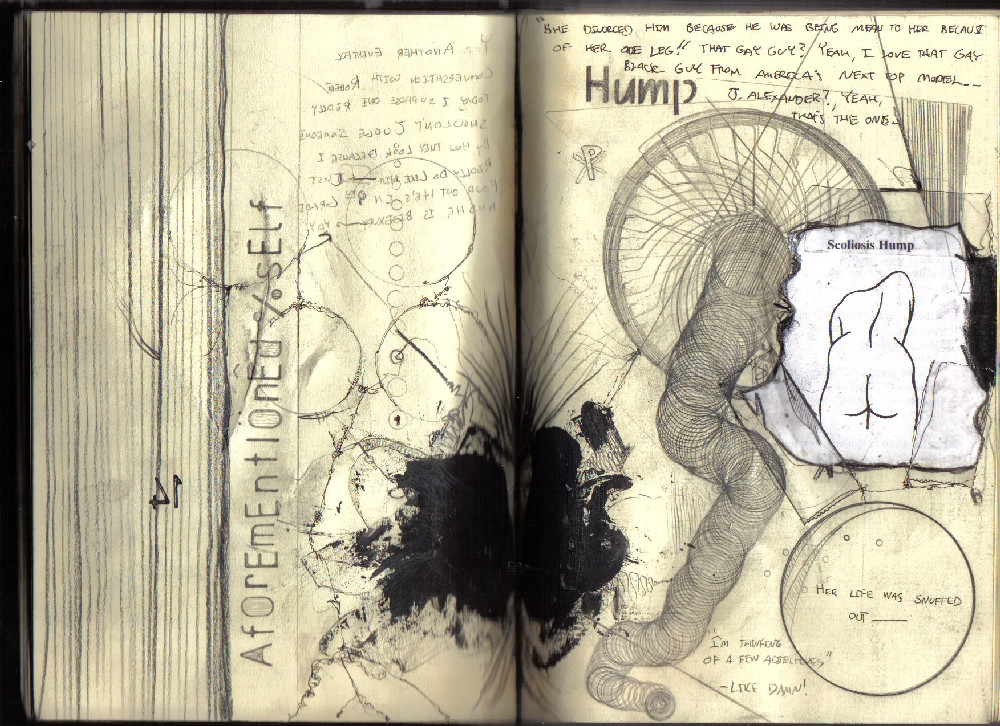 YET ANOTHER EVENTFUL
CONVERSATION WITH ROBERT
TODAY I SUPPOSE ONE REALLY
SHOULDN'T JUDGE SOMEONE
BY HOW THEY LOOK BECAUSE I
REALLY DO LIKE HIM — I JUST
FOUND OUT HE'S IN GRADE
AND HE IS
AforEmEntionEd % sElf
14
"SHE DIVORCED HIM BECAUSE HE WAS BEING MEAN TO HER BECAUSE
OF HER ONE LEG!" THAT GAY GUY? YEAH, I LOVE THAT GAY
BLACK GUY FROM AMERICA'S NEXT TOP MODEL...
Hump
J. ALEXANDER?, YEAH,
THAT'S THE ONE...
Scoliosis Hump
HER LIFE WAS SNUFFED
OUT ____
"I'M THINKING
OF A FEW ADJECTIVES"
-LIKE DAMN!